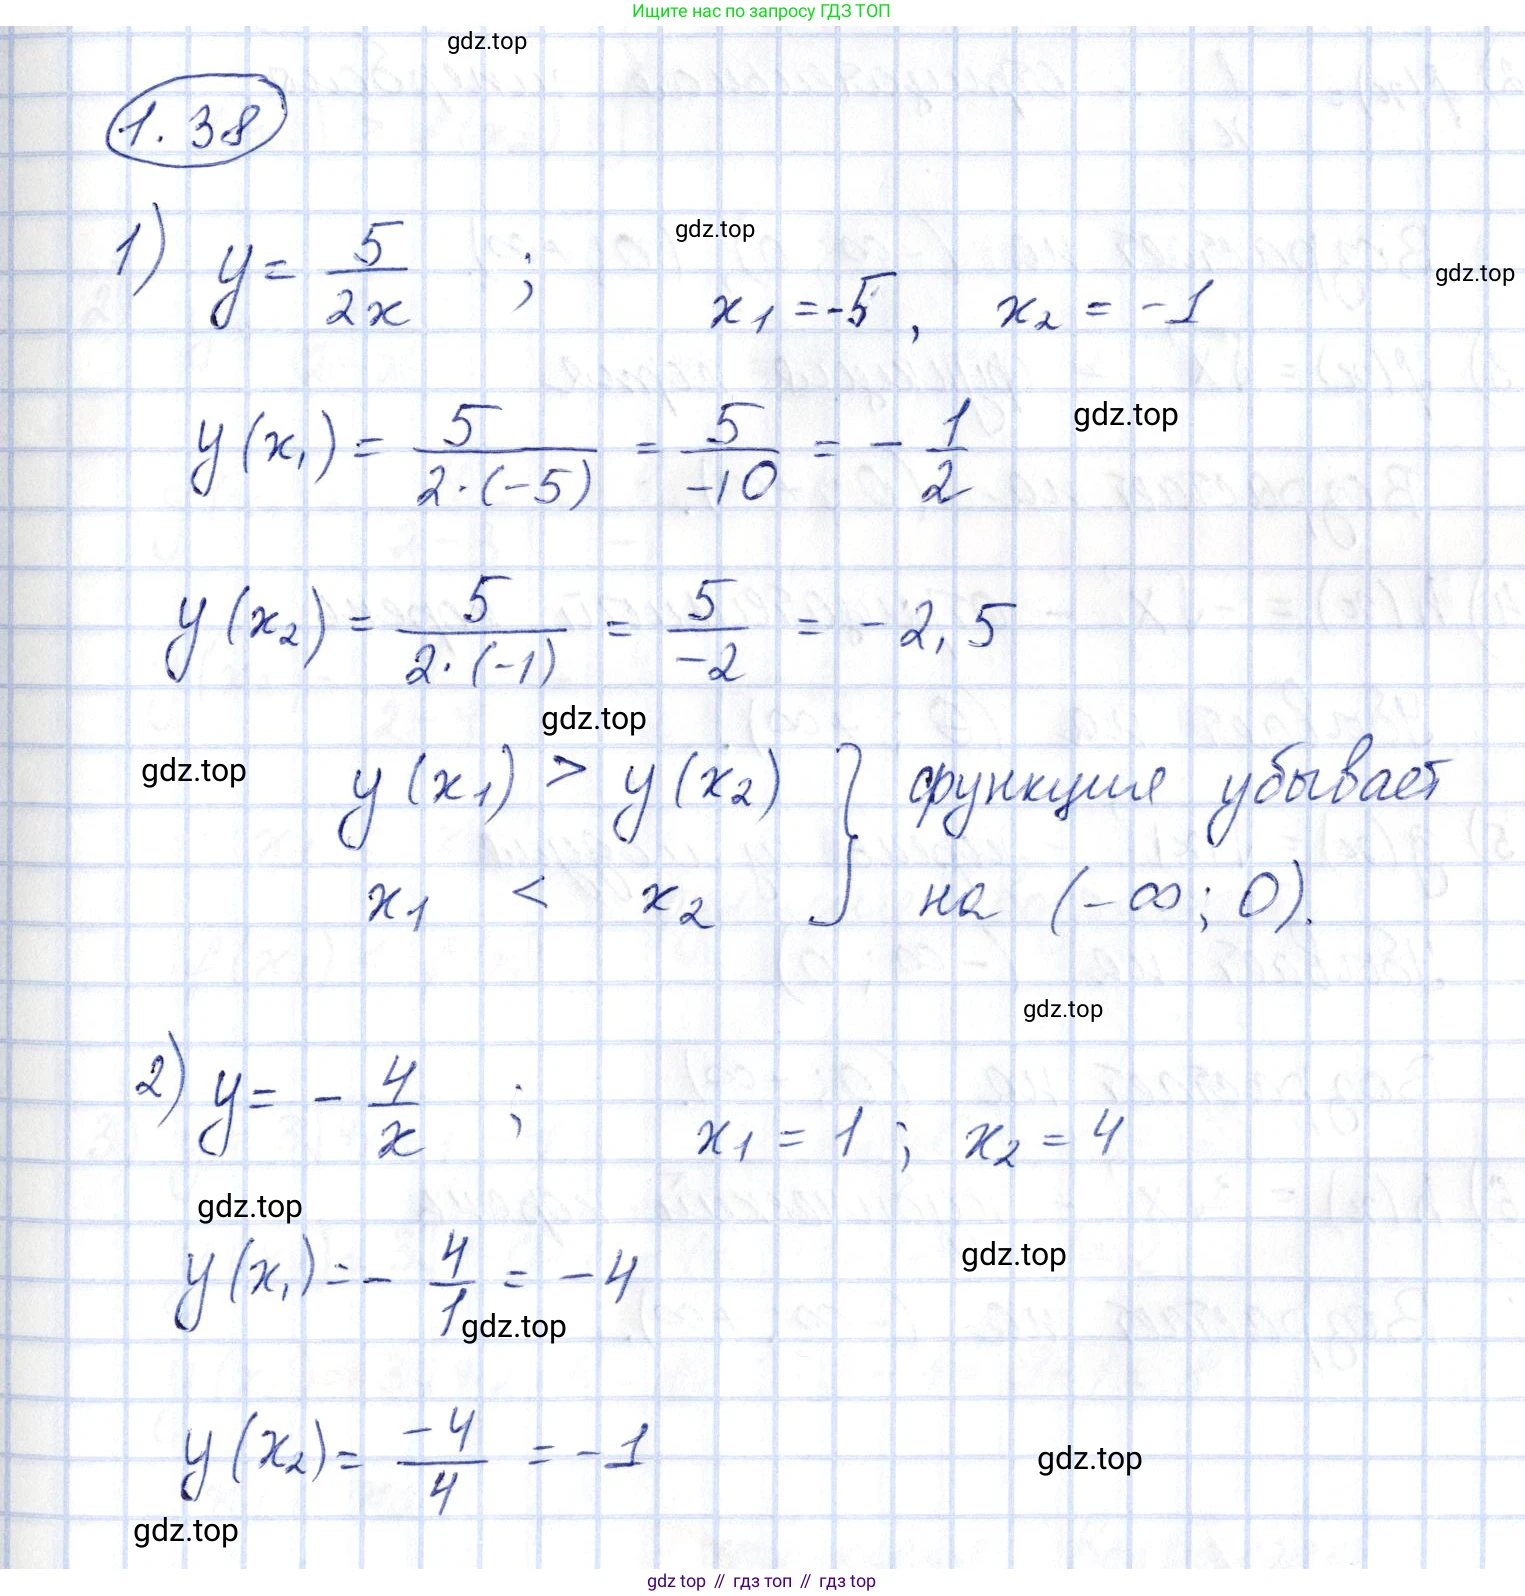 Ищите нас по запросу ГДЗ ТОП
gdz.top
1.38
gdz.top
1) y = 5/2x ; x₁ = -5, x₂ = -1
gdz.top
y(x₁) = 5/2·(-5) = 5/-10 = - 1/2
gdz.top
y(x₂) = 5/2·(-1) = 5/-2 = -2,5
gdz.top
gdz.top
y(x₁) > y(x₂) } функция убывает
x₁ < x₂ } на (-∞; 0).
gdz.top
2) y = - 4/x ; x₁ = 1 ; x₂ = 4
gdz.top
gdz.top
y(x₁) = - 4/1 = -4
gdz.top
y(x₂) = -4/4 = -1
gdz.top
gdz.top
gdz top // гдз топ // гдз top